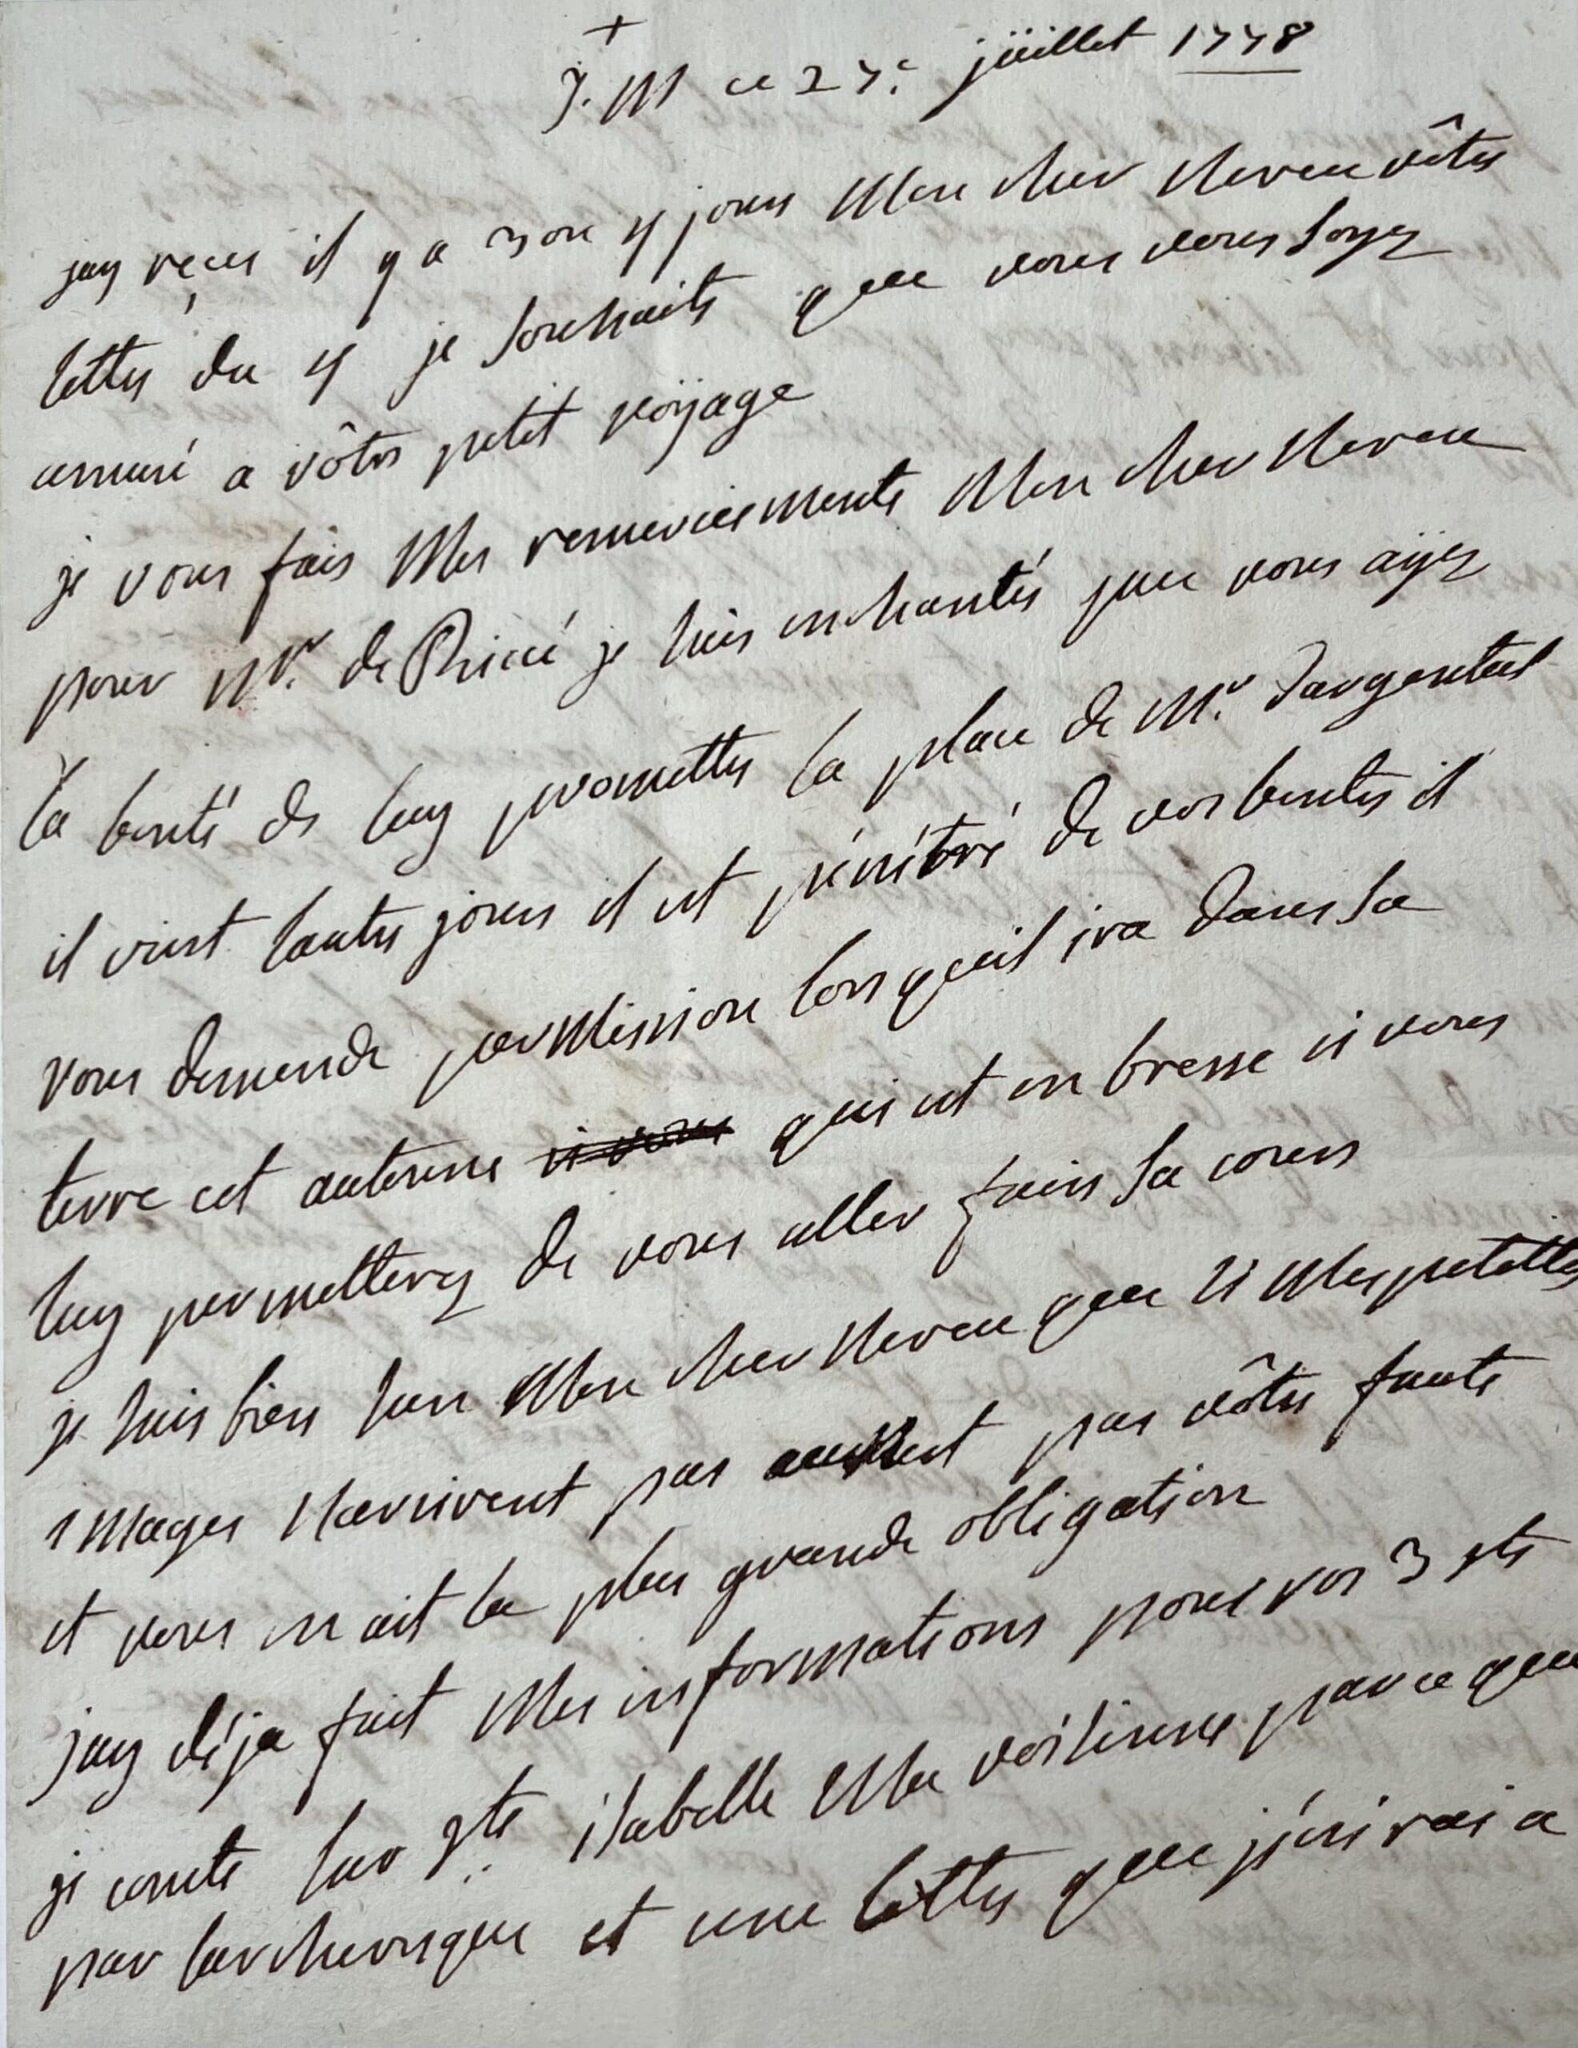 +
J. M ce 27e juillet 1778
jay reçus il y a 3 ou 4 jours Mon cher Neveu vôtre
lettre du 4 je souhaite que vous vous soyez
amusé a vôtre petit voÿage
je vous fais Mes remerciements Mon cher Neveu
pour Mr. de je suis enchantés que vous aÿez
la bonté de luy promettre la place de Mr. dargental
il vint lautre jour il est pénétré de vos bontés il
vous demende permission lorsquil ira dans sa
terre cet autonne qui est en bresse si vous
luy permetterez de vous aller faire sa cour
je suis bien sure Mon cher Neveu que si Mes petittes
images Narrivent pas ce pas vôtre faute
et vous en ait la plus grande obligation
jay déja fait Mes informations pour vos 3 stes
je conte sur ste isabelle Ma voisinne parce que
par larchevesque et une lettre que jécrirai a